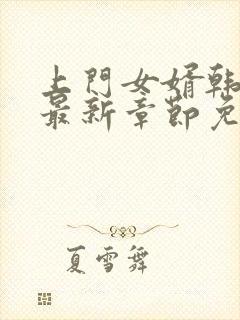 上門女婿韩
最新章節免
夏雪舞